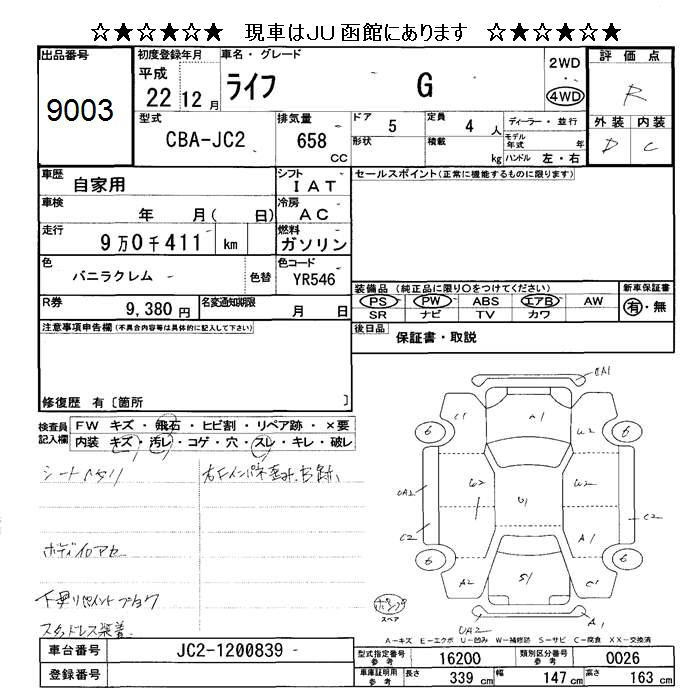 ☆★☆★☆★ 現車はJU函館にあります ☆★☆★☆★
出品番号 9003
初度登録年月 平成 22年 12月
車名・グレード ライフ G
2WD 4WD
評価点 R
外装 D 内装 C
型式 CBA-JC2
排気量 658 CC
ドア 5 形状
定員 4 人 積載 kg
ディーラー・並行
モデル年式 年
ハンドル 左・右
車歴 自家用
シフト IAT
セールスポイント(正常に機能するものに限ります)
車検 年 月( 日)
冷房 AC
走行 9万0千411 km
燃料 ガソリン
色 バニラクレム 色替
色コード YR546
装備品(純正品に限り○をつけてください)
PS PW ABS エアB AW
SR ナビ TV カワ
新車保証書 有・無
R券 9,380 円
名変通知期限 月 日
後日品 保証書・取説
注意事項申告欄(不具合内容等は具体的に記入して下さい)
修復歴 有 [箇所 ]
検査員記入欄
FW キズ・飛石・ヒビ割・リペア跡・×要
内装 キズ・汚し・コゲ・穴・スレ・キレ・破レ
ボディイロアセ
スタッドレス装着
A1
C1 A1 U2
6 6
UA2 U2 U1 U2 C2
C2 A1
6 6
A2 S1 C1
UA2 A1
スペア
A-キズ E-エクボ U-凹み W-補修跡 S-サビ C-腐食 XX-交換済
車台番号 JC2-1200839
登録番号
型式指定番号 参考 16200
類別区分番号 参考 0026
車庫証明用 参考 長さ 339 cm 幅 147 cm 高さ 163 cm